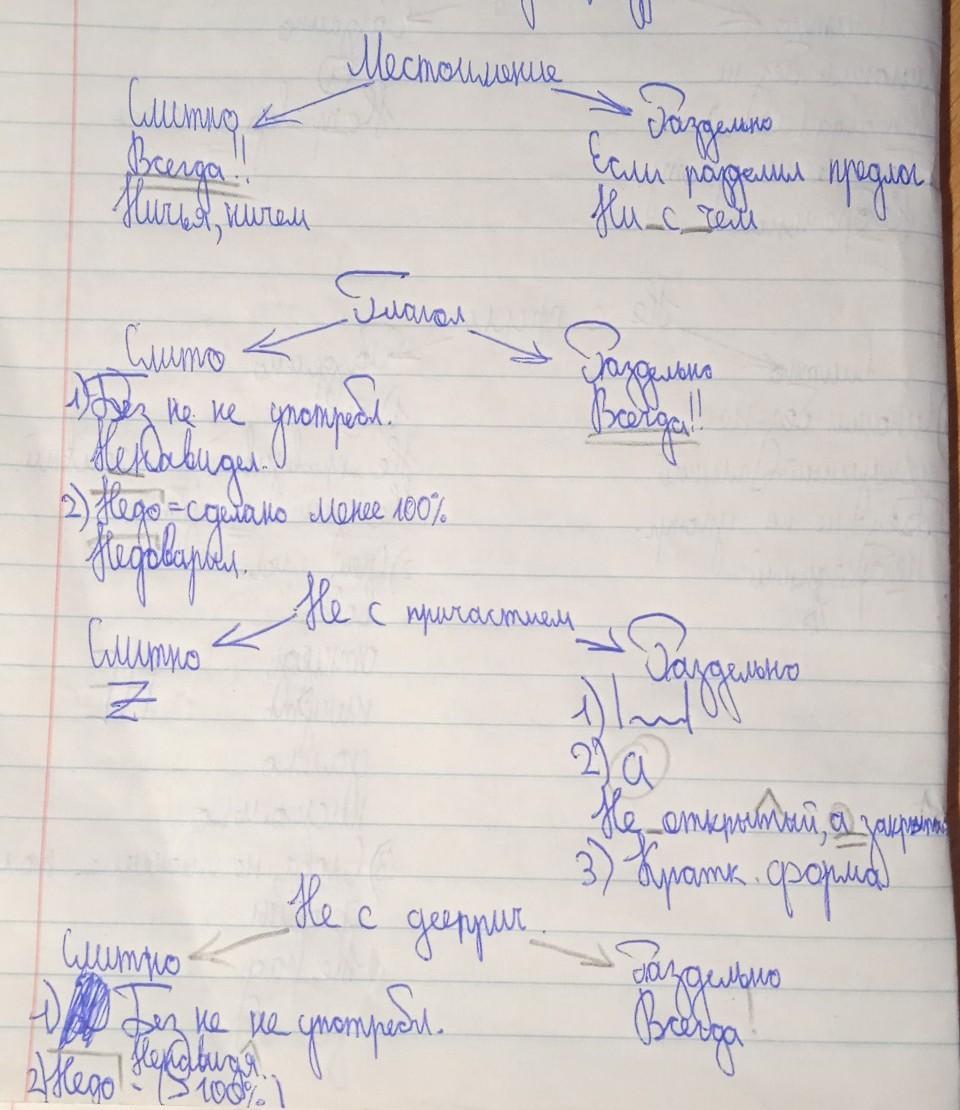 Местоимение
Слитно
Раздельно
Всегда!!
Если разделил предлог
Ничья, ничем
Ни с чем
Глагол
Слито
Раздельно
1) Без не не употребл.
Всегда!!
Ненавидел.
2) Недо = сделано менее 100%
Недоварыл.
Не с причастием
Слитно
Раздельно
1)
2) а
Не открытый, а закрытый
3) Кратк. форма
Не с дееприч.
Слитно
Раздельно
1) Без не не употребл.
Всегда!
Ненавидя.
2) Недо - (>100%)